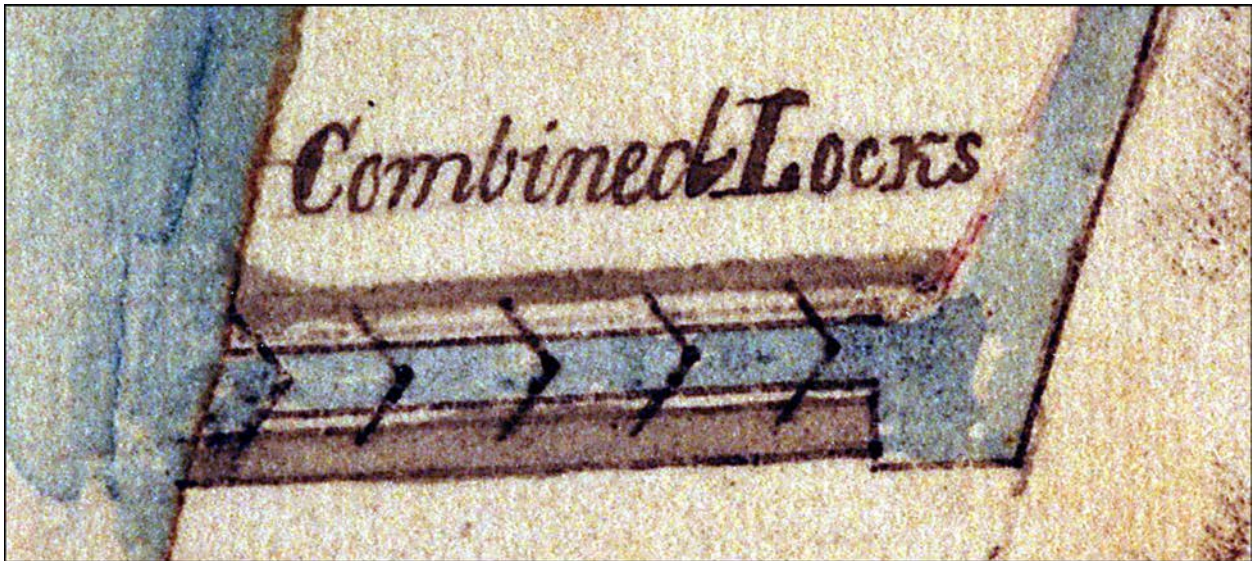 Combined Locks